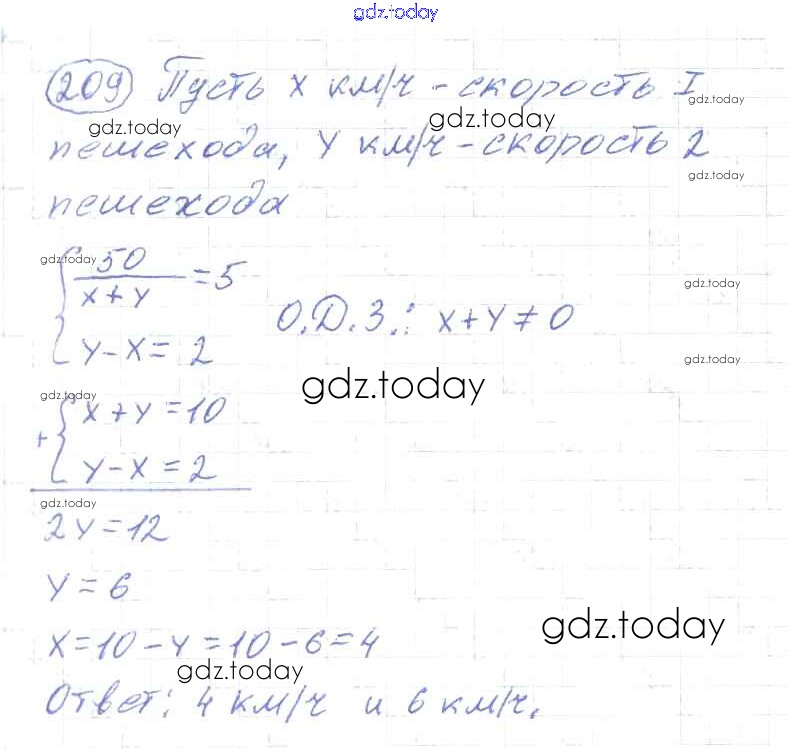 gdz.today
209 Пусть x км/ч - скорость I
gdz.today
gdz.today gdz.today
пешехода, y км/ч - скорость 2
gdz.today
пешехода
gdz.today
{ 50/(x+y) = 5
gdz.today
О.Д.З.: x+y≠0
{ y-x= 2
gdz.today
gdz.today
gdz.today
+ { x+y=10
{ y-x=2
gdz.today
2y=12
y=6
gdz.today
x=10-y=10-6=4
gdz.today
Ответ: 4 км/ч и 6 км/ч.